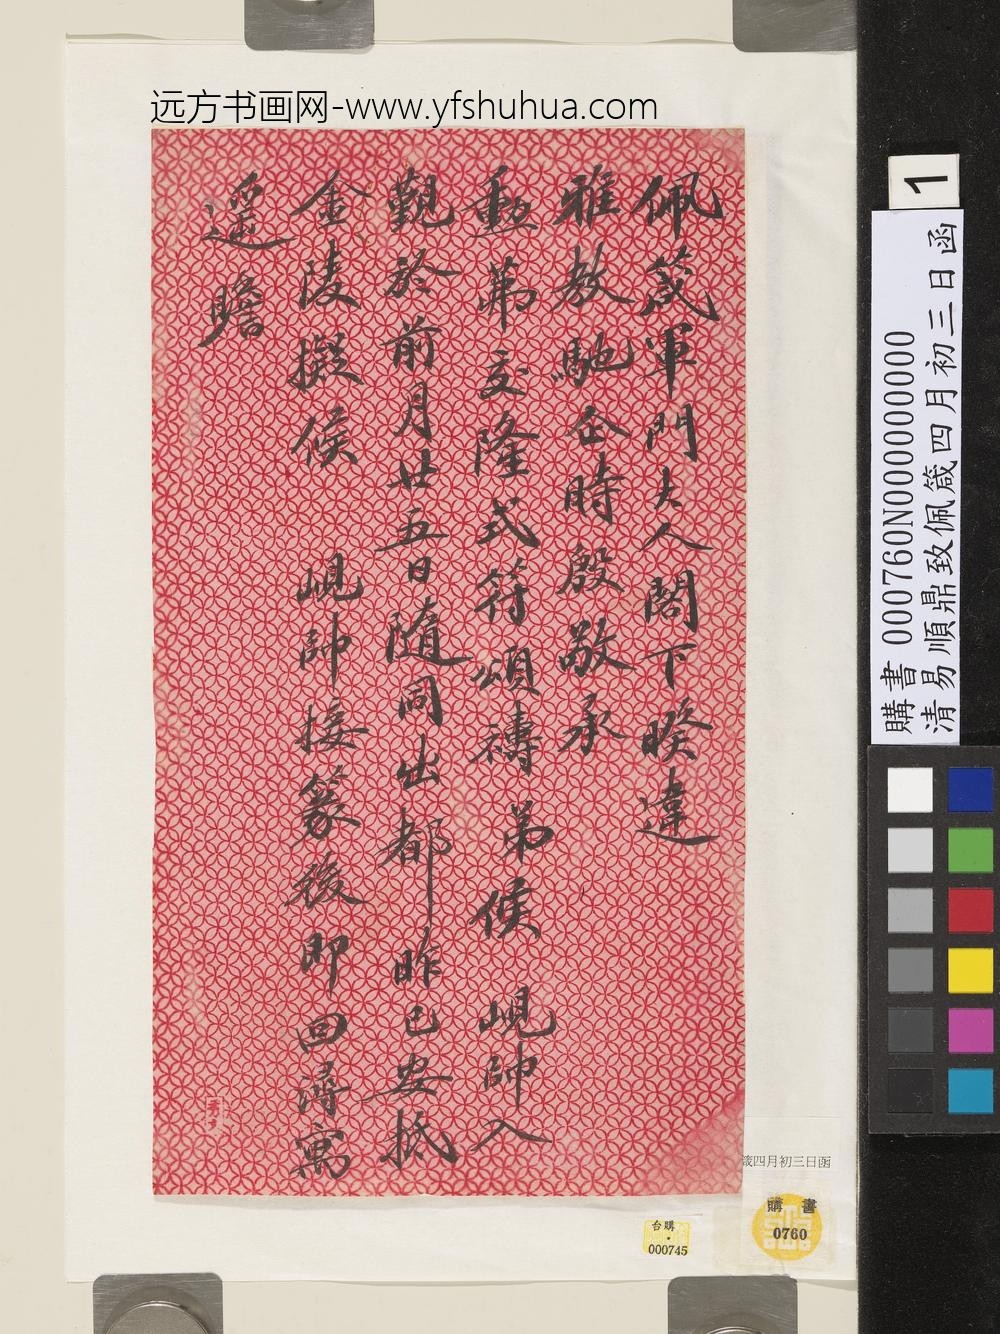 远方书画网-www.yfshuhua.com
佩箴軍門大人閣下暌違
雅教馳企時殷敬承
動弟交隆式符頌禱弟侯 峴帥入
覲於前月廿五日隨同出都昨已安抵
金陵擬候 峴帥接篆後即回濤寓
遥瞻
1
購書 000760N000000000
清易順鼎致佩箴四月初三日函
箴四月初三日函
購書
0760
台購
000745